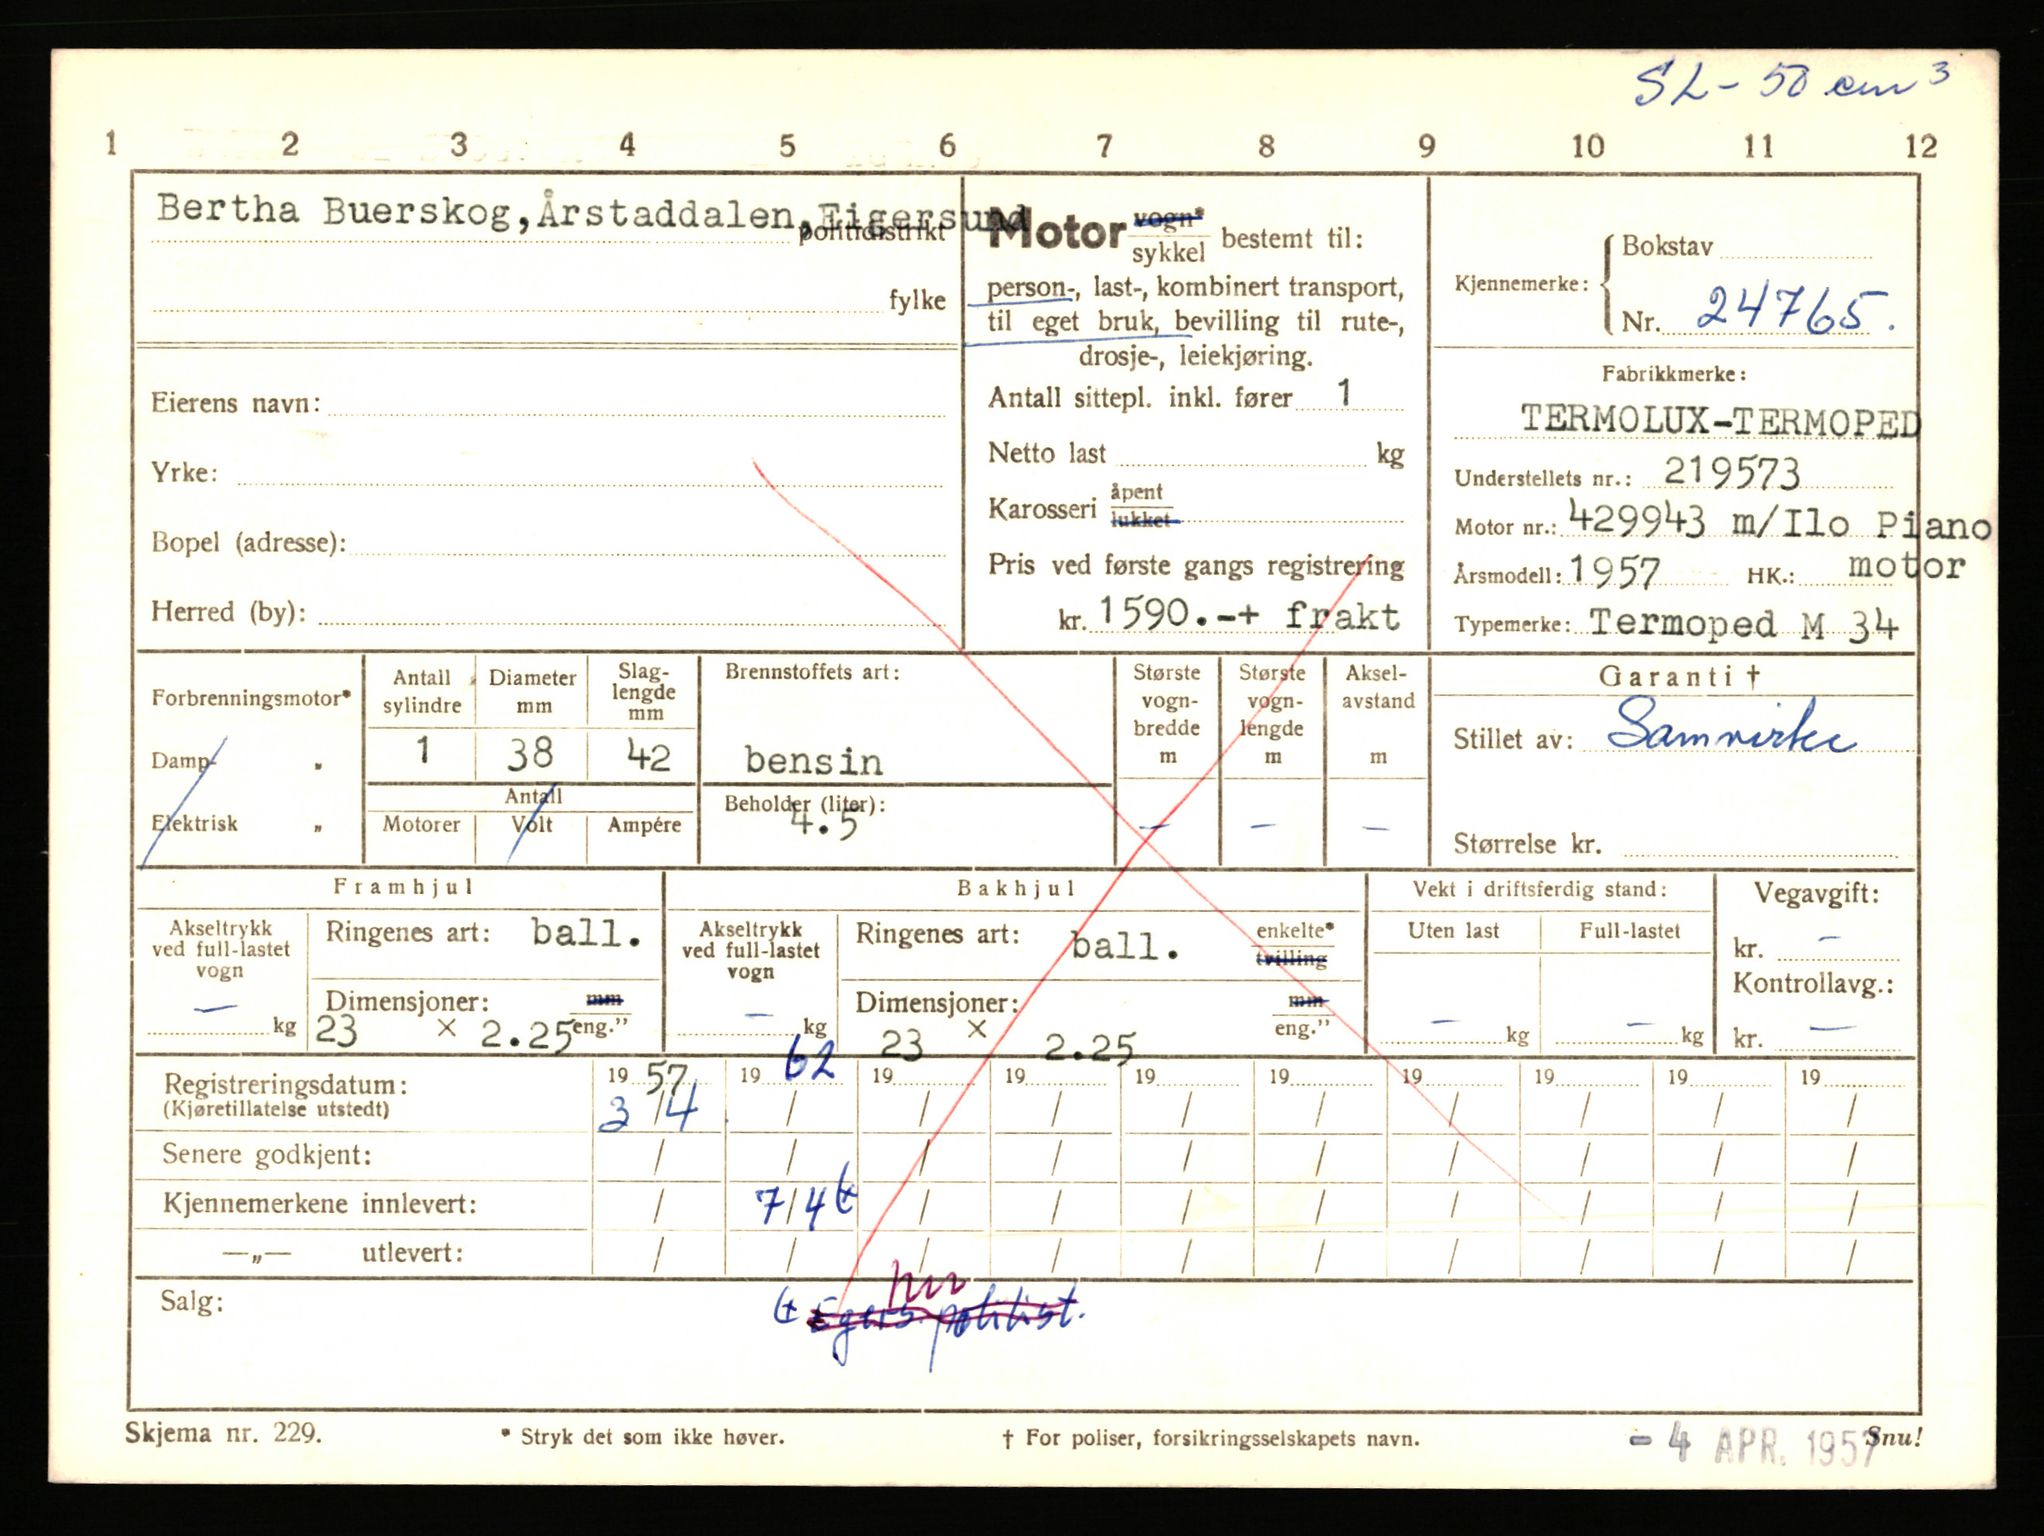 SL- 50 cm³
1 2 3 4 5 6 7 8 9 10 11 12
Bertha Buerskog, Årstaddalen, Eigersund
politidistrikt
fylke
Eierens navn:
Yrke:
Bopel (adresse):
Herred (by):
Motor vogn* sykkel bestemt til:
person-, last-, kombinert transport,
til eget bruk, bevilling til rute-,
drosje-, leiekjøring.
Antall sittepl. inkl. fører 1
Netto last kg
Karosseri åpent lukket
Pris ved første gangs registrering
kr. 1590.-+ frakt
Kjennemerke: Bokstav
Nr. 24765.
Fabrikkmerke:
TERMOLUX-TERMOPED
Understellets nr.: 219573
Motor nr.: 429943 m/Ilo Piano
Årsmodell: 1957 HK.: motor
Typemerke: Termoped M 34
Forbrenningsmotor*
Damp- „
Elektrisk „
Antall sylindre
1
Diameter mm
38
Slag-lengde mm
42
Antall
Motorer Volt Ampére
Brennstoffets art:
bensin
Beholder (liter):
4.5
Største vogn-bredde m
–
Største vogn-lengde m
–
Aksel-avstand m
–
Garanti †
Stillet av: Samvirke
Størrelse kr.
Framhjul
Akseltrykk ved full-lastet vogn
– kg
Ringenes art: ball.
Dimensjoner: mm
23 × 2.25 eng.”
Bakhjul
Akseltrykk ved full-lastet vogn
– kg
Ringenes art: ball. enkelte* tvilling
Dimensjoner: mm
23 × 2.25 eng.”
Vekt i driftsferdig stand:
Uten last Full-lastet
– kg – kg
Vegavgift:
kr. –
Kontrollavg.:
kr. –
Registreringsdatum: 19 57 19 62 19 19 19 19 19 19 19 19
(Kjøretillatelse utstedt) 3/4 / / / / / / / / /
Senere godkjent: / / / / / / / / / /
Kjennemerkene innlevert: / 7/4 / / / / / / / /
—„— utlevert: / / / / / / / / / /
Salg:
Egers. politist.
Skjema nr. 229.
* Stryk det som ikke høver.
† For poliser, forsikringsselskapets navn.
- 4 APR. 1957
Snu!